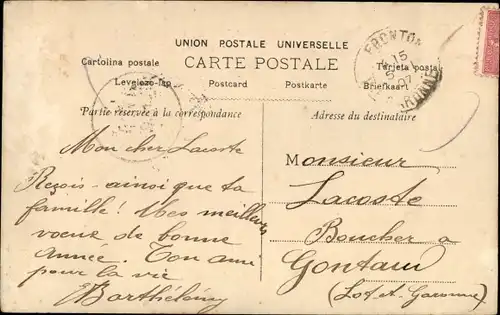 UNION POSTALE UNIVERSELLE
CARTE POSTALE
Cartolina postale
Tarjeta postal
Levelezo-lap
Postcard
Postkarte
Briefkaart
FRONTON
15
5
07
GARONNE
Partie réservée à la correspondance
Adresse du destinataire
Mon cher Lacoste
Reçois ainsi que ta
famille! Mes meilleurs
voeux de bonne
année. Ton ami
pour la vie
Barthélémy
Monsieur
Lacoste
Boucher a
Gontaud
(Lot-et-Garonne)